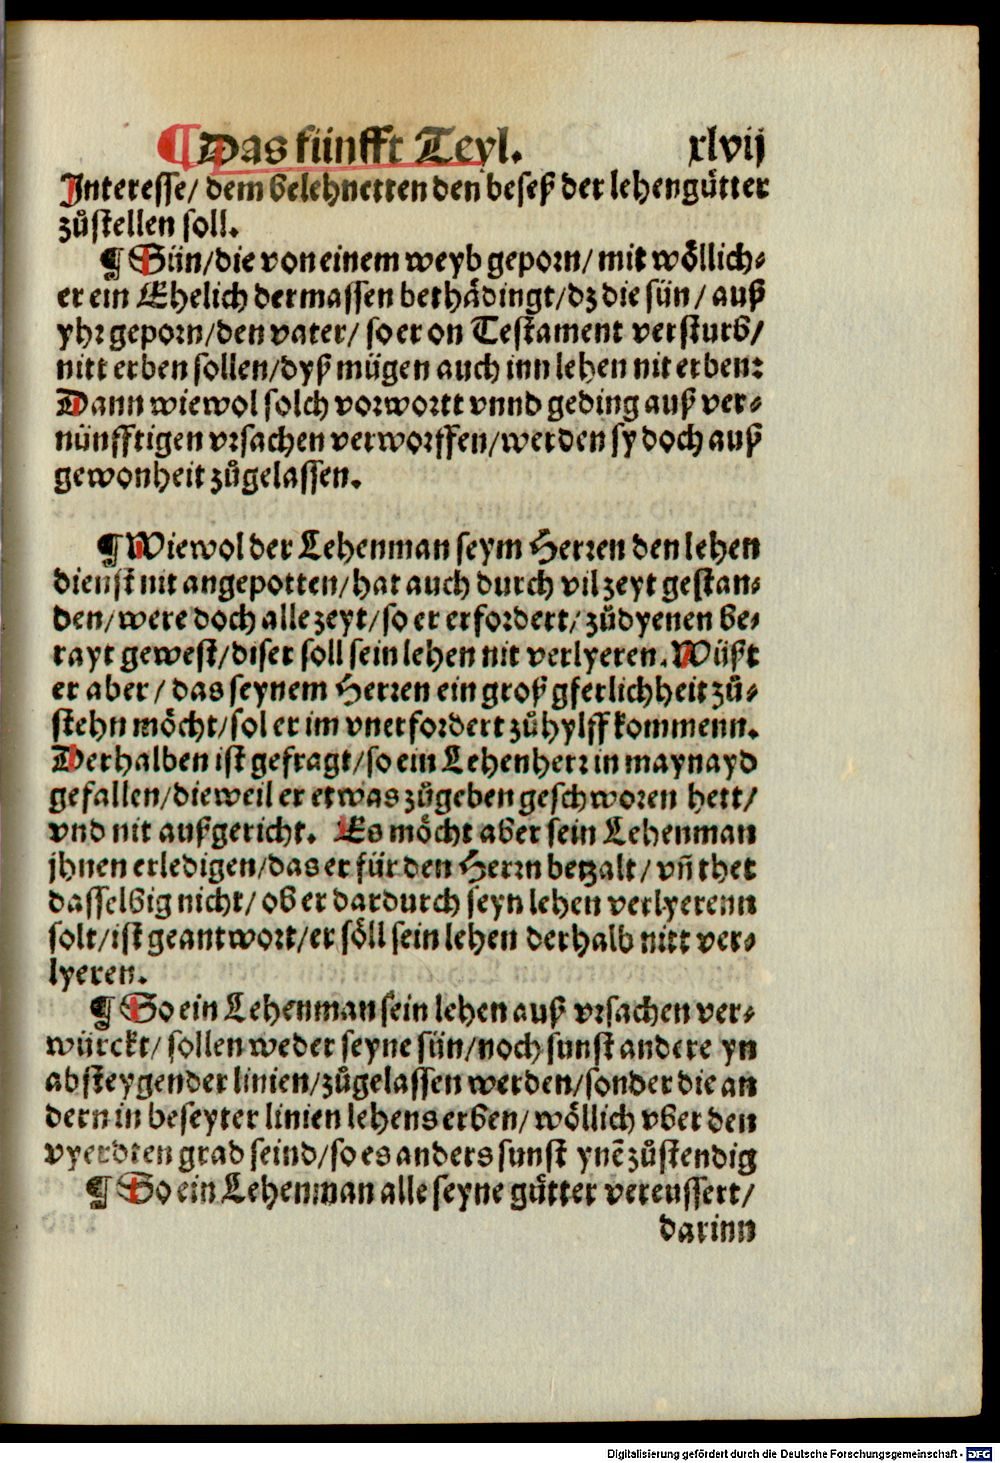 ¶Das fünfft Teyl. xlvij
Interesse/ dem belehnetten den beseß der lehengůtter
zůstellen soll.
¶ Sün/die von einem weyb geporn/ mit wöllich⸗
er ein Ehelich dermassen bethädingt/dz die sün/ auß
yhr geporn/den vater/ so er on Testament versturb/
nitt erben sollen/dyß mügen auch inn lehen nit erben:
Dann wiewol solch vorwortt vnnd geding auß ver⸗
nünfftigen vrsachen verworffen/werden sy doch auß
gewonheit zůgelassen.
¶ Wiewol der Lehenman seym Herren den lehen
dienst nit angepotten/hat auch durch vil zeyt gestan⸗
den/were doch alle zeyt/so er erfordert/ zůdyenen be⸗
rayt gewest/diser soll sein lehen nit verlyeren. Wüßt
er aber/ das seynem Herren ein groß gferlichheit zů⸗
stehn möcht/sol er im vnerfordert zů hylff kommenn.
Derhalben ist gefragt/so ein Lehenherr in maynayd
gefallen/dieweil er etwas zůgeben geschworen hett/
vnd nit außgericht. Es möcht aber sein Lehenman
jhnen erledigen/das er für den Herrn betzalt/ vñ thet
dasselbig nicht/ ob er dardurch seyn lehen verlyerenn
solt/ist geantwort/er söll sein lehen derhalb nitt ver⸗
lyeren.
¶ So ein Lehenman sein lehen auß vrsachen ver⸗
würckt/ sollen weder seyne sün/noch sunst andere yn
absteygender linien/zůgelassen werden/sonder die an
dern in beseyter linien lehens erben/ wöllich vber den
vyerdten grad seind/so es anders sunst ynẽ zůstendig
¶ So ein Lehenman alle seyne gůtter vereussert/
darinn
Digitalisierung gefördert durch die Deutsche Forschungsgemeinschaft - DFG